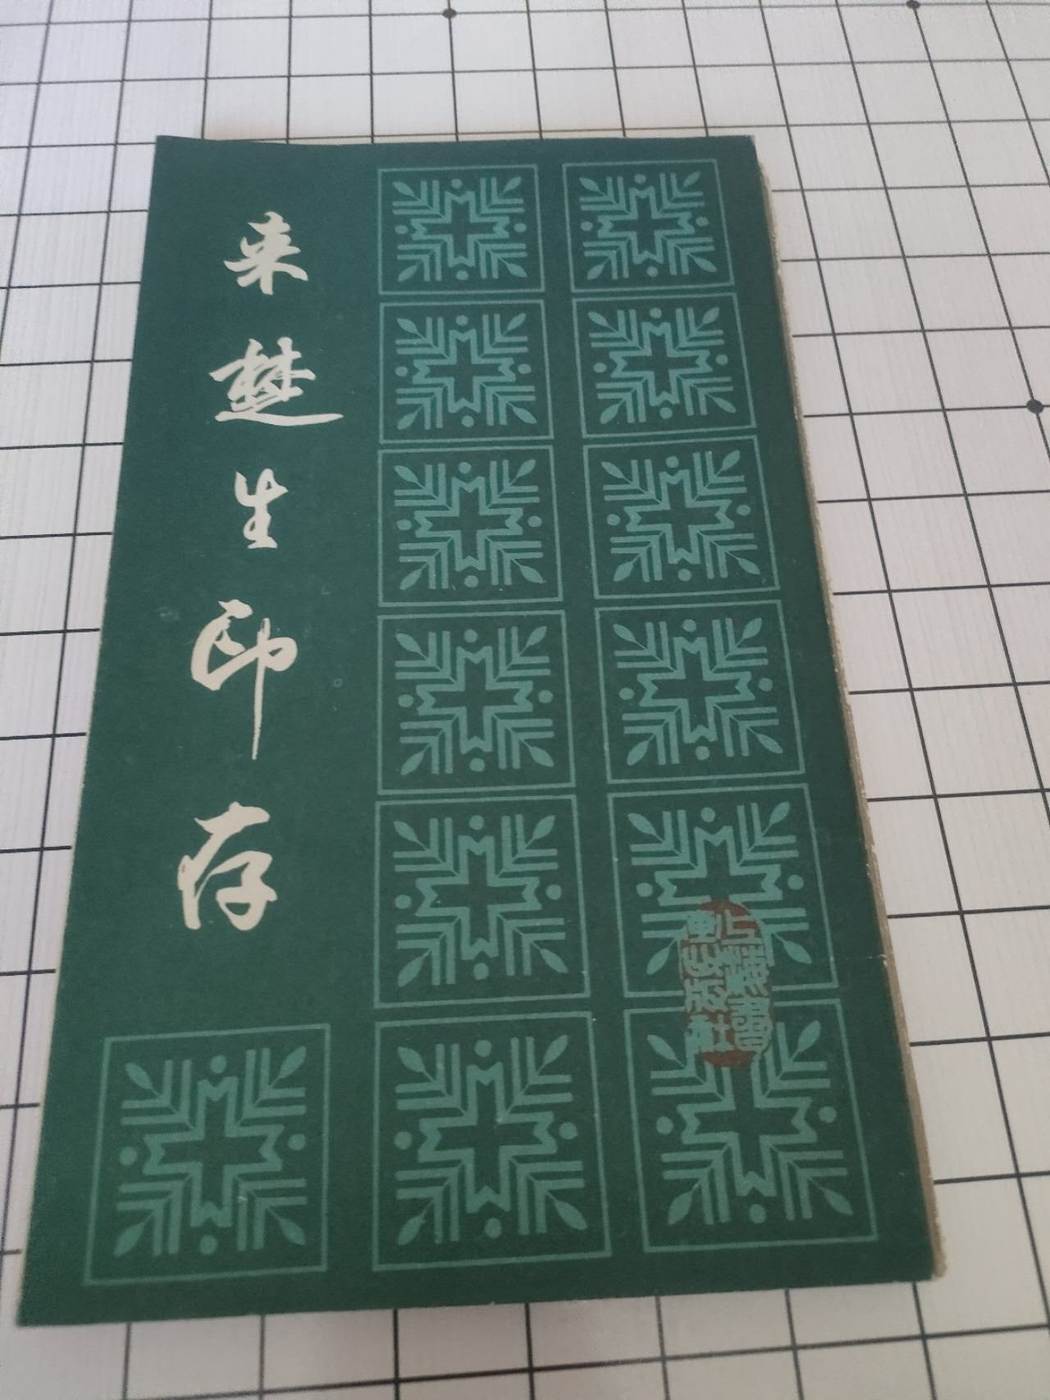 来楚生印存
上海書畫出版社